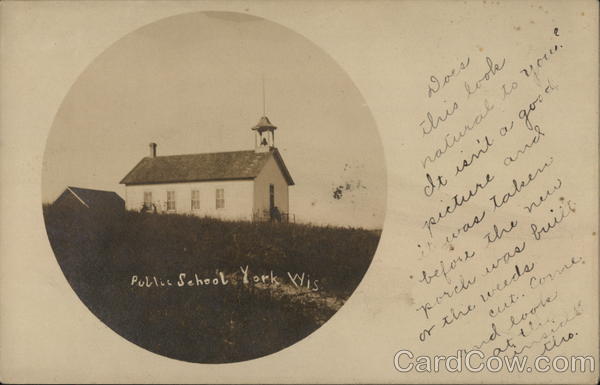 Public School York Wis.
Does
this look
natural to you?
It isn't a good
picture and
it was taken
before the new
porch was built
or the weeds
cut. Come
and look
at the
inside
tho.
CardCow.com